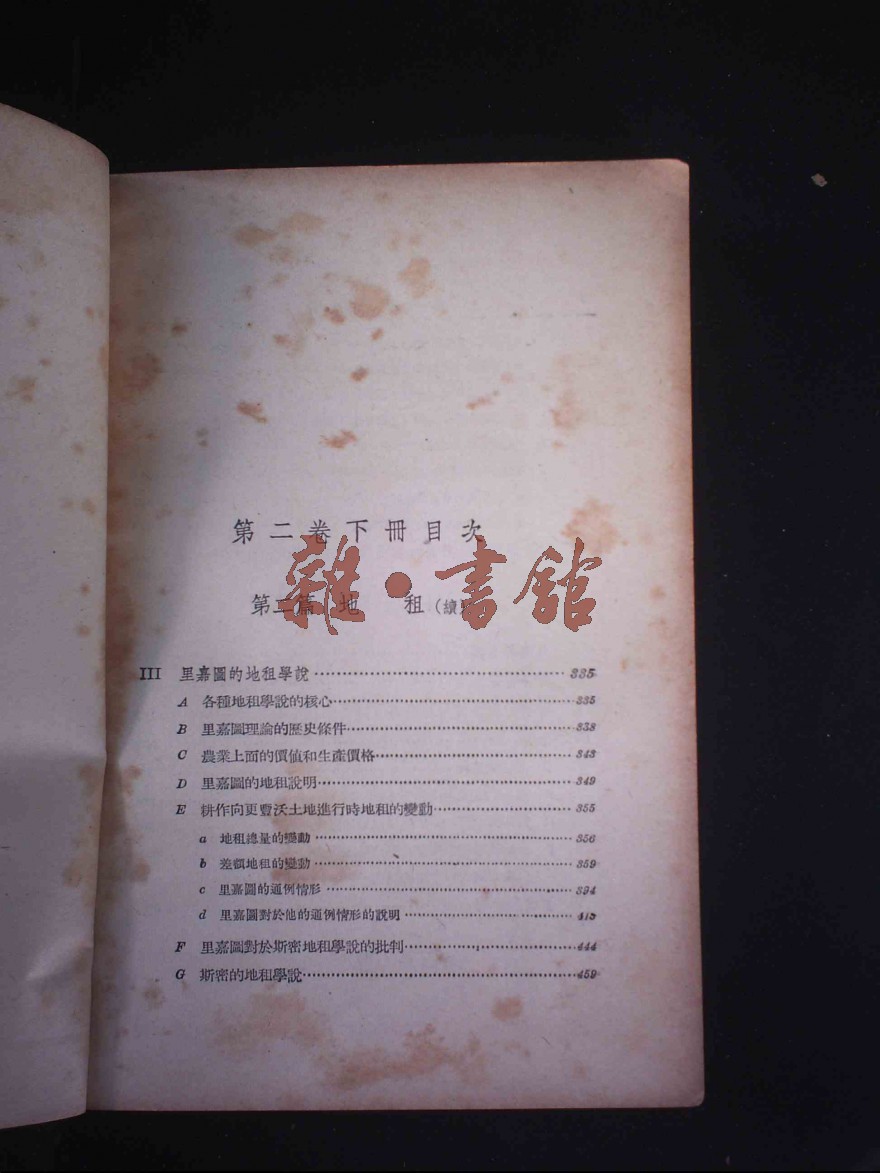 第二卷下冊目次
雜•書館
第二篇 地 租(續
III 里嘉圖的地租學說 335
A 各種地租學說的核心 335
B 里嘉圖理論的歷史條件 338
C 農業上面的價値和生產價格 343
D 里嘉圖的地租說明 349
E 耕作向更豐沃土地進行時地租的變動 355
a 地租總量的變動 356
b 差額地租的變動 359
c 里嘉圖的通例情形 394
d 里嘉圖對於他的通例情形的說明
F 里嘉圖對於斯密地租學說的批判 444
G 斯密的地租學說 459